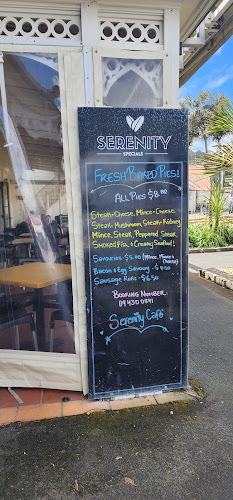 SERENITY
SERENITY
SPECIALS
FRESH BAKED PIES!
ALL PIES $8.
Steam-Cheese, Mince-Cheese,
Steak Mushroom, Steak-Kidney
Mince, Steak, Peppered Steak,
Smoked Fish, & Creamy Seafood!
Savouries - (Mince, Mince &
Cheese)
Bacon & Egg Savoury -
Sausage Rolls - $6.50
BOOKING NUMBER
09 430 0841
Serenity Café